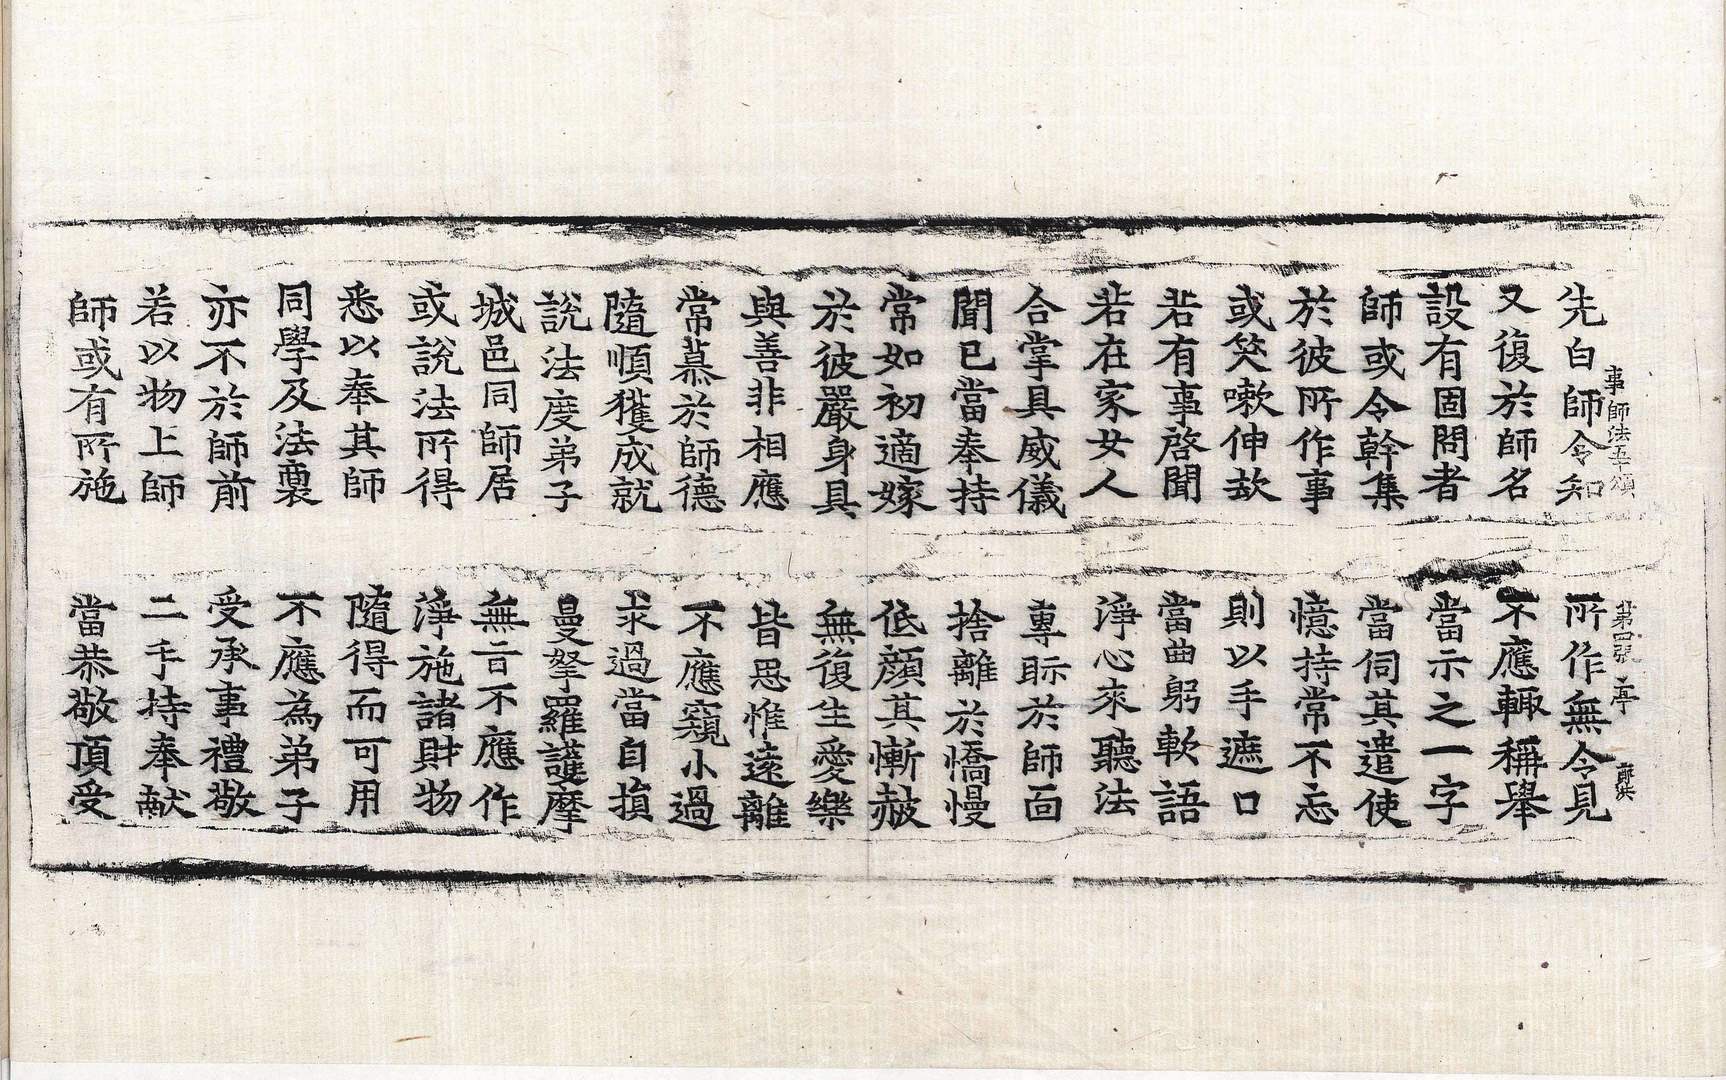 事師法五十頌 第四張 亭
先白師令知 所作無令見
又復於師名 不應輙稱舉
設有固問者 當示之一字
師或令幹集 當伺其遣使
於彼所作事 憶持常不忘
或笑嗽伸欬 則以手遮口
若有事啓聞 當曲躬軟語
若在家女人 淨心來聽法
合掌具威儀 專眎於師面
聞已當奉持 捨離於憍慢
常如初適嫁 低顔其慚赧
於彼嚴身具 無復生愛樂
與善非相應 皆思惟遠離
常慕於師德 不應窺小過
隨順獲成就 求過當自損
說法度弟子 曼拏羅護摩
城邑同師居 無言不應作
或說法所得 淨施諸財物
悉以奉其師 隨得而可用
同學及法裔 不應為弟子
亦不於師前 受承事禮敬
若以物上師 二手持奉献
師或有所施 當恭敬頂受